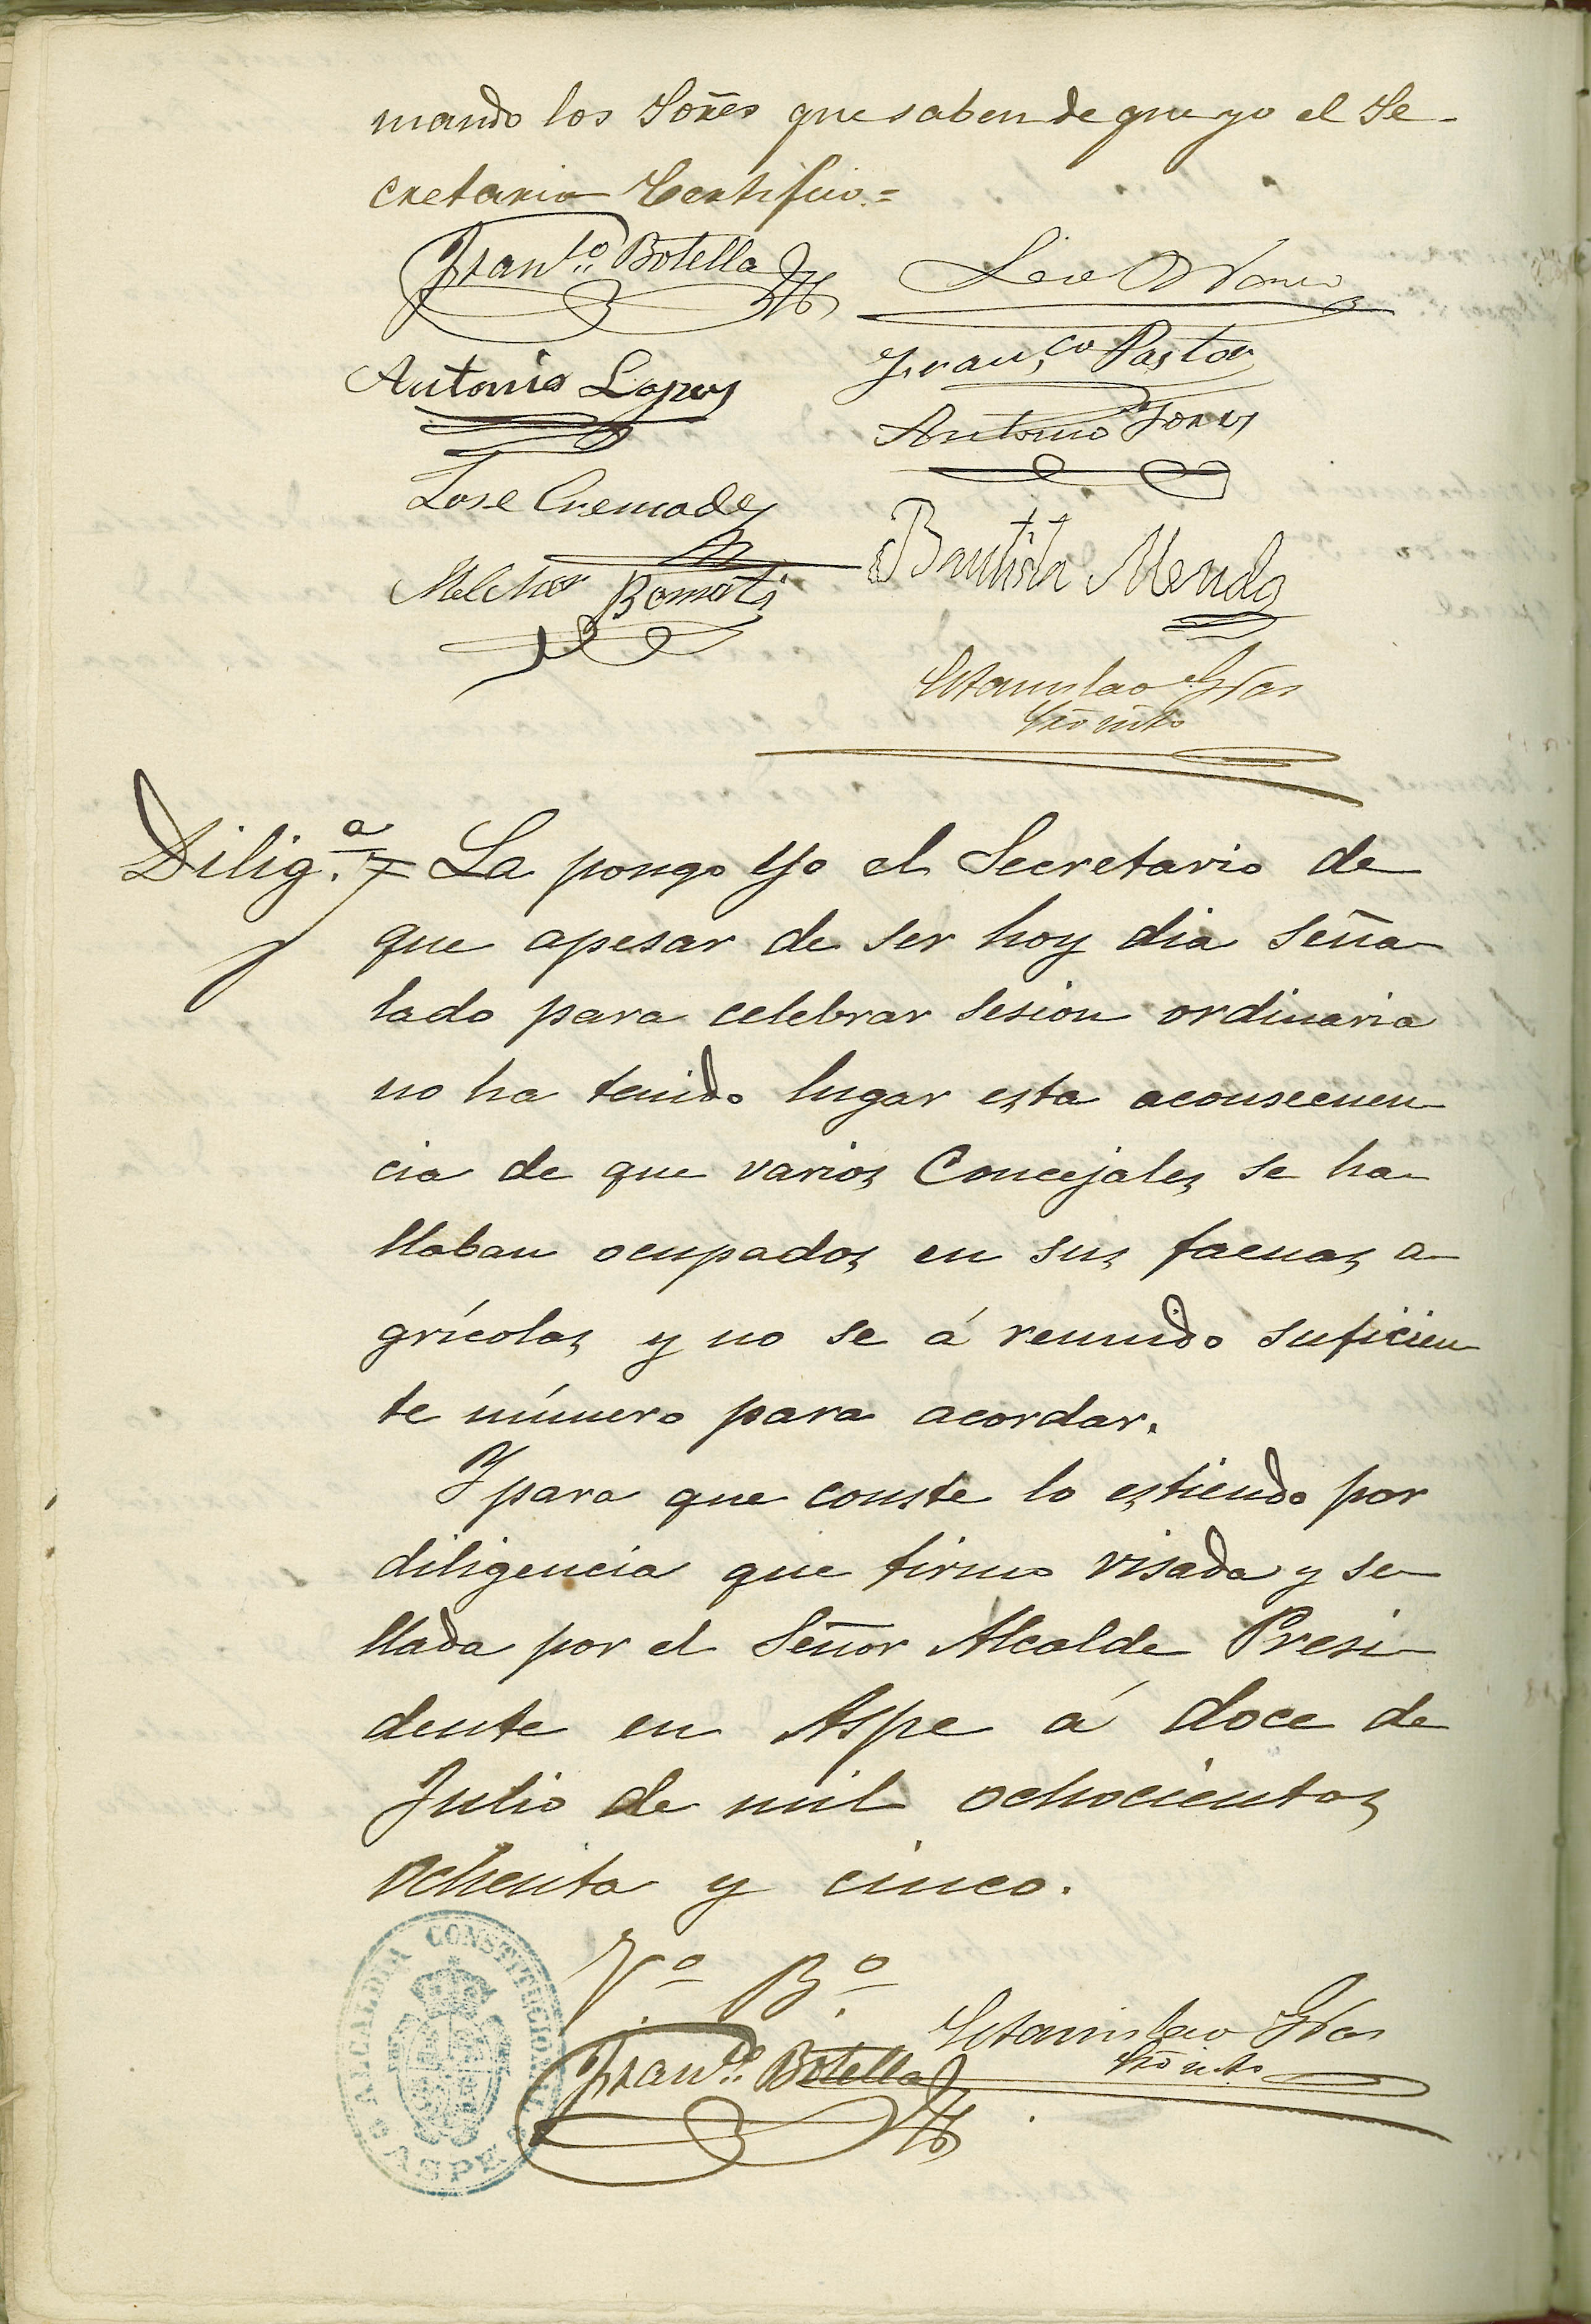 mando los Sõres que saben de que yo el Se-
cretario Certifico.=
Fran.co Botella
Franco. Pastor
Antonio Lopez
Antonio
Jose Cremades
Bautista
Melchor Bomati
Estanislao
Dilig.a La pongo Yo el Secretario de
que apesar de ser hoy dia seña-
lado para celebrar sesion ordinaria
no ha tenido lugar esta aconsecuen-
cia de que varios Concejales se ha-
llaban ocupados en sus faenas a-
grícolas y no se á reunido suficien-
te número para acordar.
Y para que conste lo estiendo por
diligencia que firmo visada y se-
llada por el Señor Alcalde Presi-
dente en Aspe á doce de
Julio de mil ochocientos
ochenta y cinco.
V.o B.o
Estanislao
Fran.co Botella
ALCALDIA CONSTITUCIONAL
ASPE